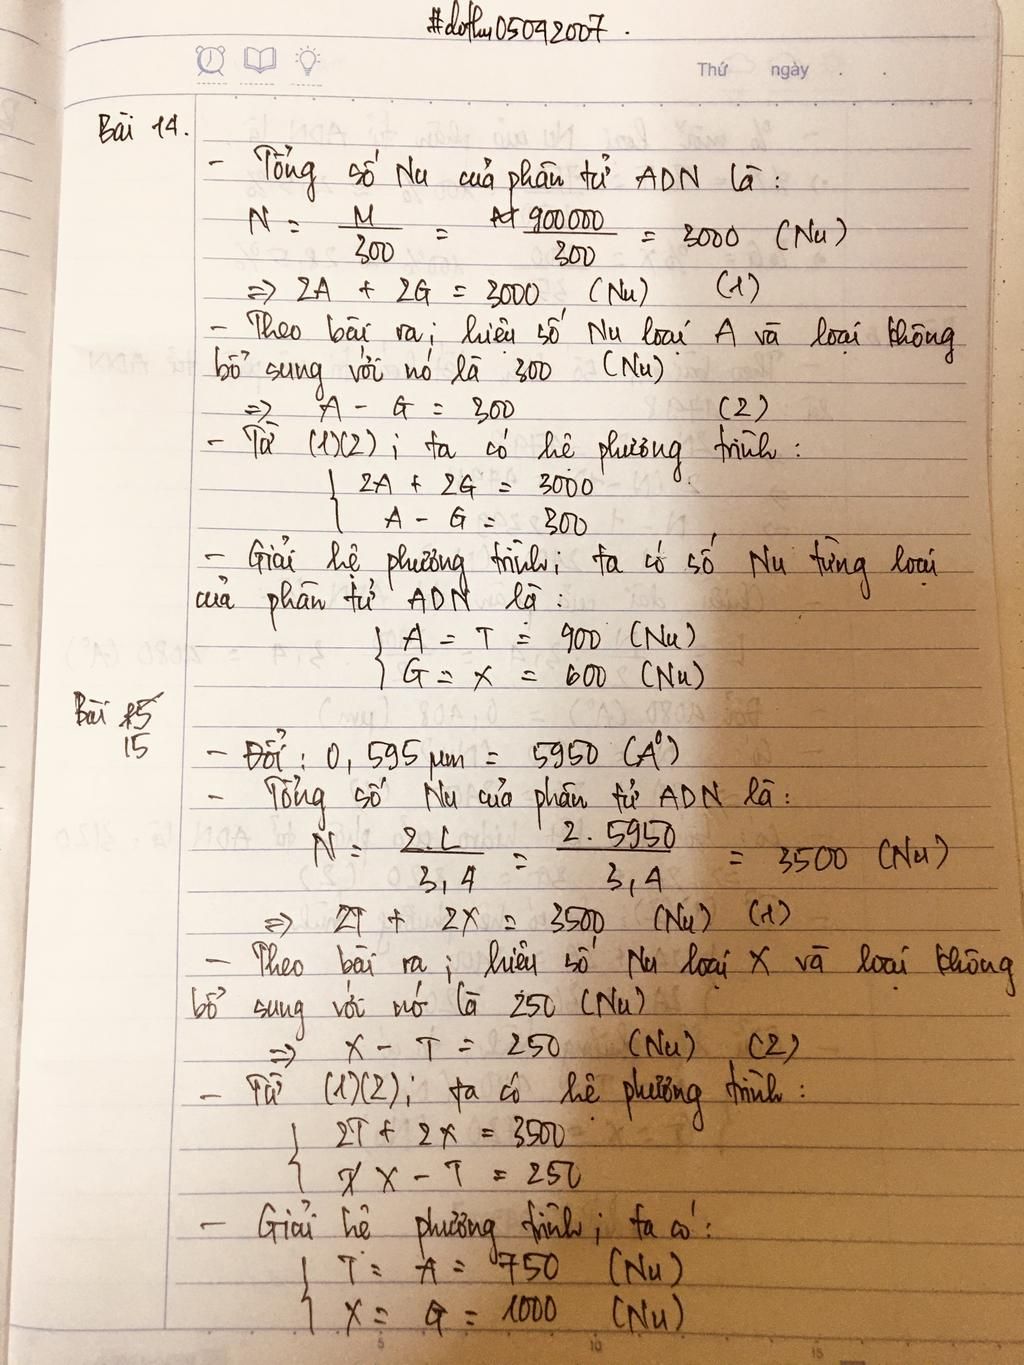 #dothu05042007.
Thứ ngày
Bài 14.
- Tổng số Nu của phân tử ADN là:
N = M/300 = 900000/300 = 3000 (Nu)
=> 2A + 2G = 3000 (Nu) (1)
- Theo bài ra; hiệu số Nu loại A và loại không
bổ sung với nó là 300 (Nu)
=> A - G = 300 (2)
- Từ (1)(2); ta có hệ phương trình:
2A + 2G = 3000
A - G = 300
- Giải hệ phương trình; ta có số Nu từng loại
của phân tử ADN là:
A = T = 900 (Nu)
G = X = 600 (Nu)
Bài 15
- Đổi: 0,595 µm = 5950 (A⁰)
- Tổng số Nu của phân tử ADN là:
N = 2.L/3,4 = 2.5950/3,4 = 3500 (Nu)
=> 2T + 2X = 3500 (Nu) (1)
- Theo bài ra; hiệu số Nu loại X và loại không
bổ sung với nó là 250 (Nu)
=> X - T = 250 (Nu) (2)
- Từ (1)(2); ta có hệ phương trình:
2T + 2X = 3500
X - T = 250
- Giải hệ phương trình; ta có:
T = A = 750 (Nu)
X = G = 1000 (Nu)
5 10 15